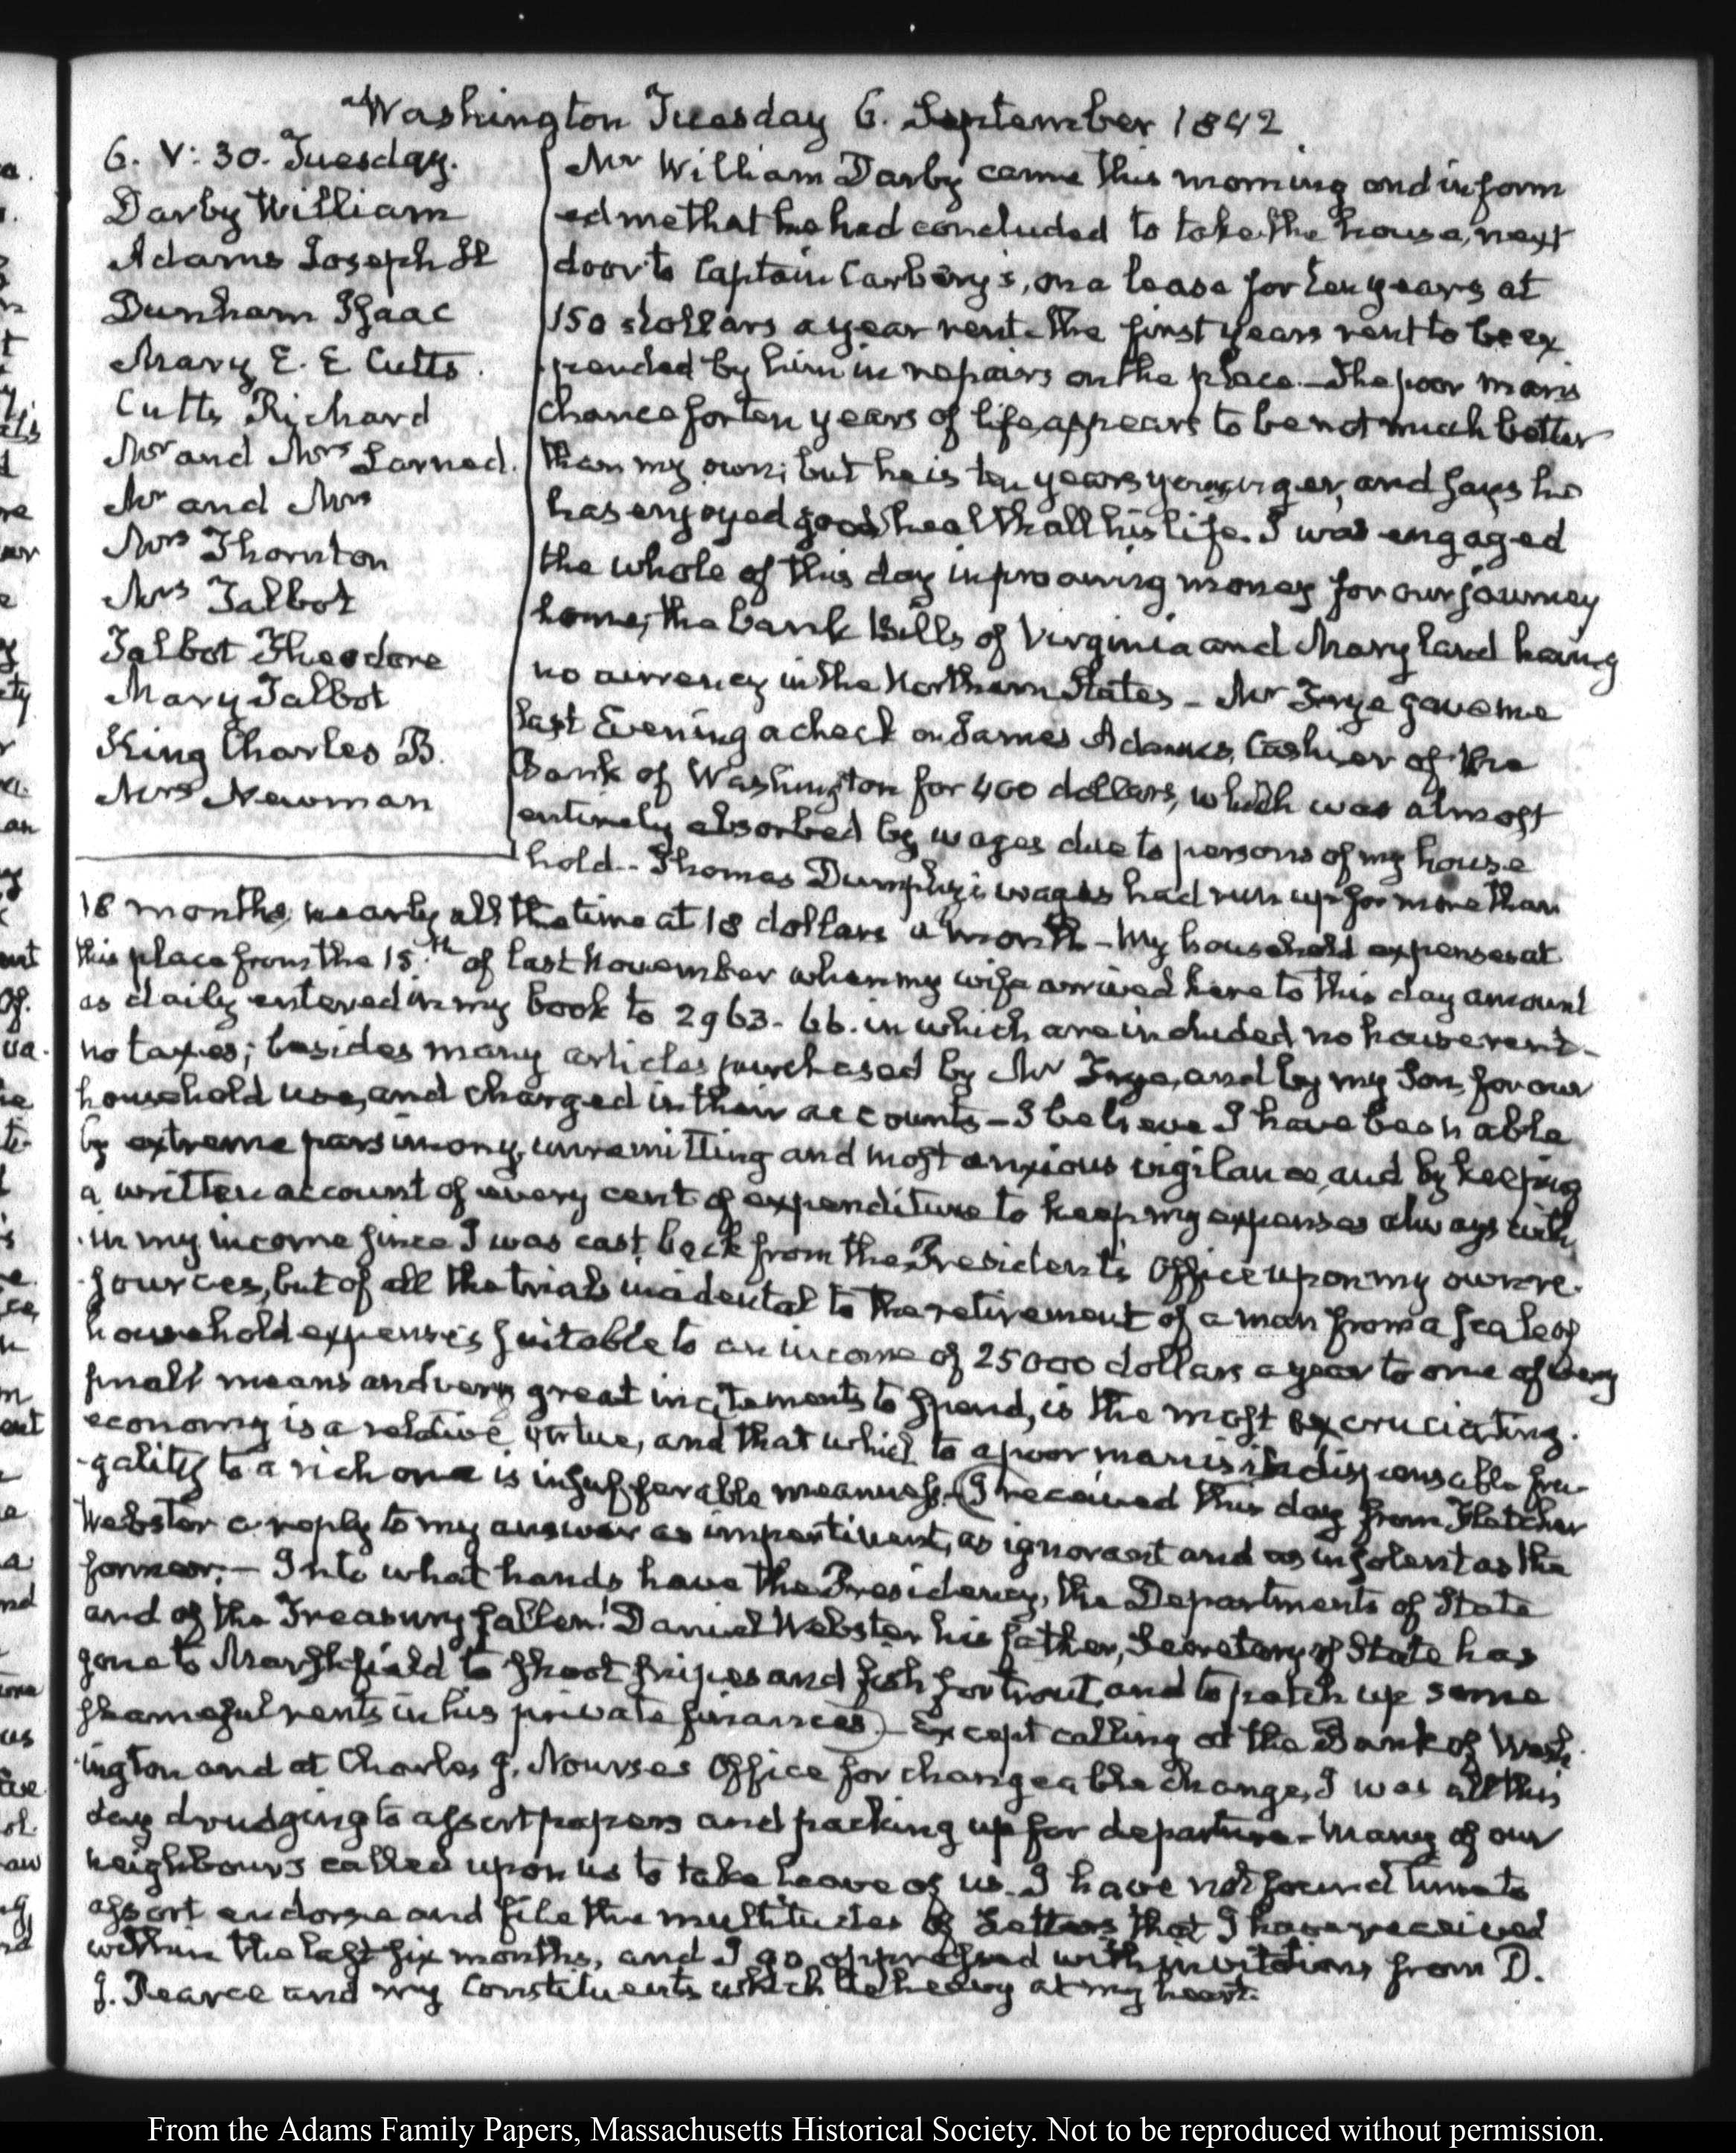 Washington Tuesday 6. September 1842
6. V: 30. Tuesday.
Darby William
Adams Joseph H
Dunham Isaac
Mary E. E Cutts.
Cutts Richard
Mr and Mrs Larned.
Mr and Mrs
Mrs Thornton
Mrs Talbot
Talbot Theodore
Mary Talbot
King Charles B.
Mrs Newman
Mr William Darby came this morning and inform
ed me that he had concluded to take the house, next
door to Captain Carbery's, on a lease for ten years at
150 dollars a year rent. The first years rent to be ex
pended by him in repairs on the place.—The poor man's
chance for ten years of life, appears to be not much better
than my own; but he is ten years younger, and says he
has enjoyed good health all his life. I was engaged
the whole of this day in procuring money for our journey
home; the bank Bills of Virginia and Maryland having
no currency in the Northern States—Mr Frye gave me
last Evening a check on James Adams, Cashier of the
Bank of Washington for 400 dollars, which was almost
entirely absorbed by wages due to persons of my house
hold.—Thomas Dumphy's wages had run up for more than
18 months, nearly all the time at 18 dollars a month—My household expenses at
this place from the 15.th of last November when my wife arrived here to this day amount
as daily entered in my book to 2963-66. in which are included no house rent—
no taxes; besides many articles purchased by Mr Frye, and by my Son, for our
household use, and charged in their accounts—I believe I have been able
by extreme parsimony, unremitting and most anxious vigilance, and by keeping
a written account of every cent of expenditure to keep my expenses always with
in my income since I was cast back from the President's Office upon my own re-
sources, but of all the trials incidental to the retirement of a man from a scale of
household expenses suitable to an income of 25000 dollars a year to one of very
small means and very great incitements to spend, is the most excruciating.
economy is a relative virtue, and that which to a poor man is indispensable fru-
gality to a rich one is insufferable meanness—(I received this day from Fletcher
Webster a reply to my answer as impertinent, as ignorant and as insolent as the
former.—Into what hands have the Presidency, the Departments of State
and of the Treasury fallen! Daniel Webster his father, Secretary of State has
gone to Marshfield to shoot snipes and fish for trout, and to patch up some
shameful rents in his private finances)—Except calling at the Bank of Wash-
ington and at Charles J. Nourse's Office for changeable change, I was all this
day drudging to assort papers and packing up for departure—Many of our
neighbours called upon us to take leave of us. I have not found time to
assort endorse and file the multitudes of Letters that I have received
within the last six months, and I go oppressed with invitations from D.
J. Pearce and my Constituents which lie heavy at my heart.
From the Adams Family Papers, Massachusetts Historical Society. Not to be reproduced without permission.